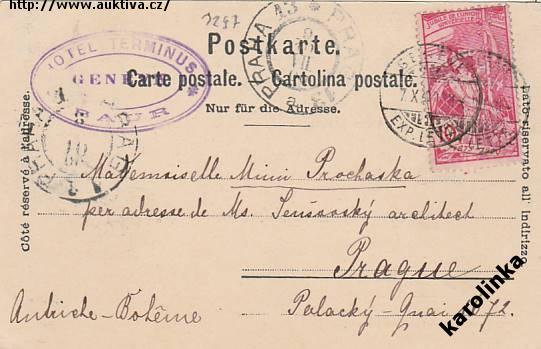 http://www.auktiva.cz/
3297
HOTEL TERMINUS
GENÈVE
BAUR
PRAHA 13
Postkarte.
Carte postale. Cartolina postale.
Nur für die Adresse.
Côté réservé à l'adresse.
Lato riservato all' indirizzo.
EXP. LE
Mademoiselle Mimi Prochaska
per adresse de Ms. architect
Prague
Palacký-Quai 372.
Autriche-Bohême
karolinka